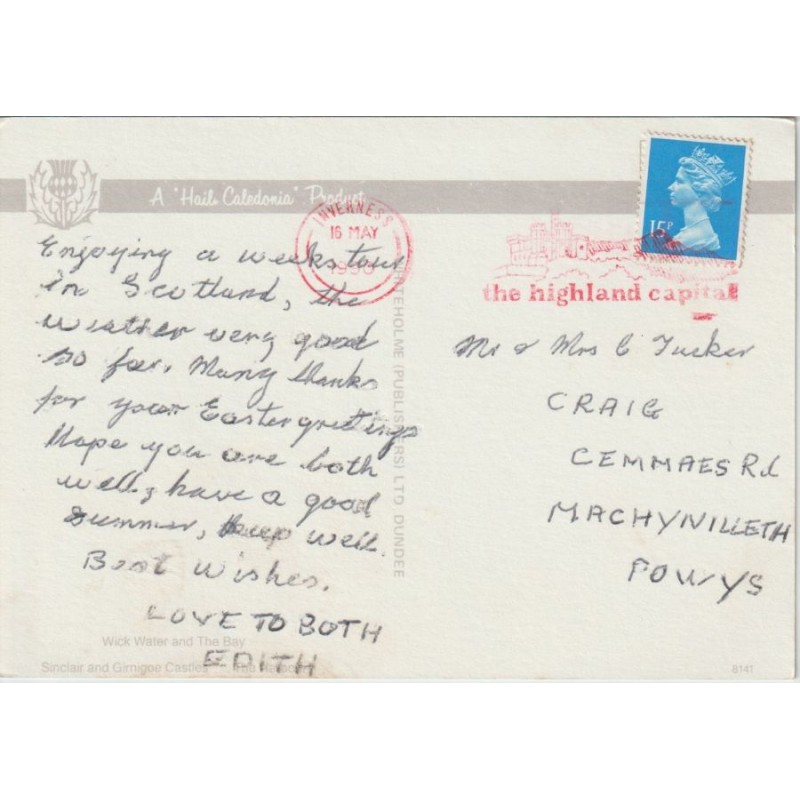 A "Hail Caledonia" Product
INVERNESS
16 MAY
1990
15P
the highland capital
Enjoying a weeks tour
in Scotland, the
weather very good
so far. Many thanks
for your Easter greetings
Hope you are both
well, have a good
summer, keep well.
Best Wishes.
LOVE TO BOTH
EDITH
WHITEHOLME (PUBLISHERS) LTD DUNDEE
Mr & Mrs C Tucker
CRAIG
CEMMAES Rd
MACHYNILLETH
POWYS
Wick Water and The Bay
Sinclair and Girnigoe Castles The
8141